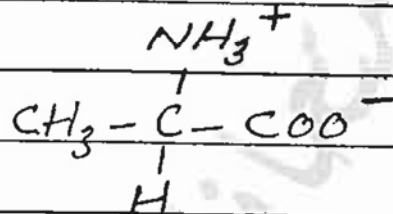 NH₃⁺
CH₃ – C – COO⁻
H